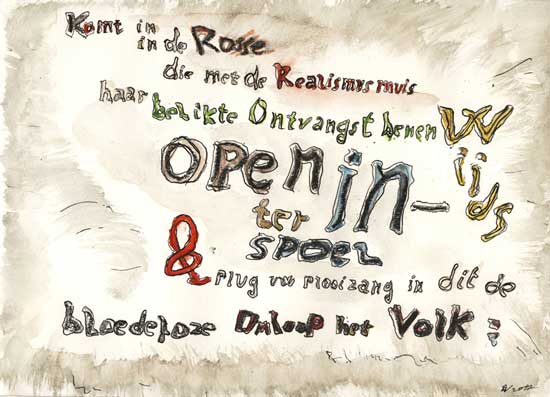 Komt in
in de Rosse
die met de Realismusmuis
haar belikte Ontvangst benen Wijds
open in-
ter
spoel
& plug uw prooizang in dit de
bloedeloze Omloop het Volk :